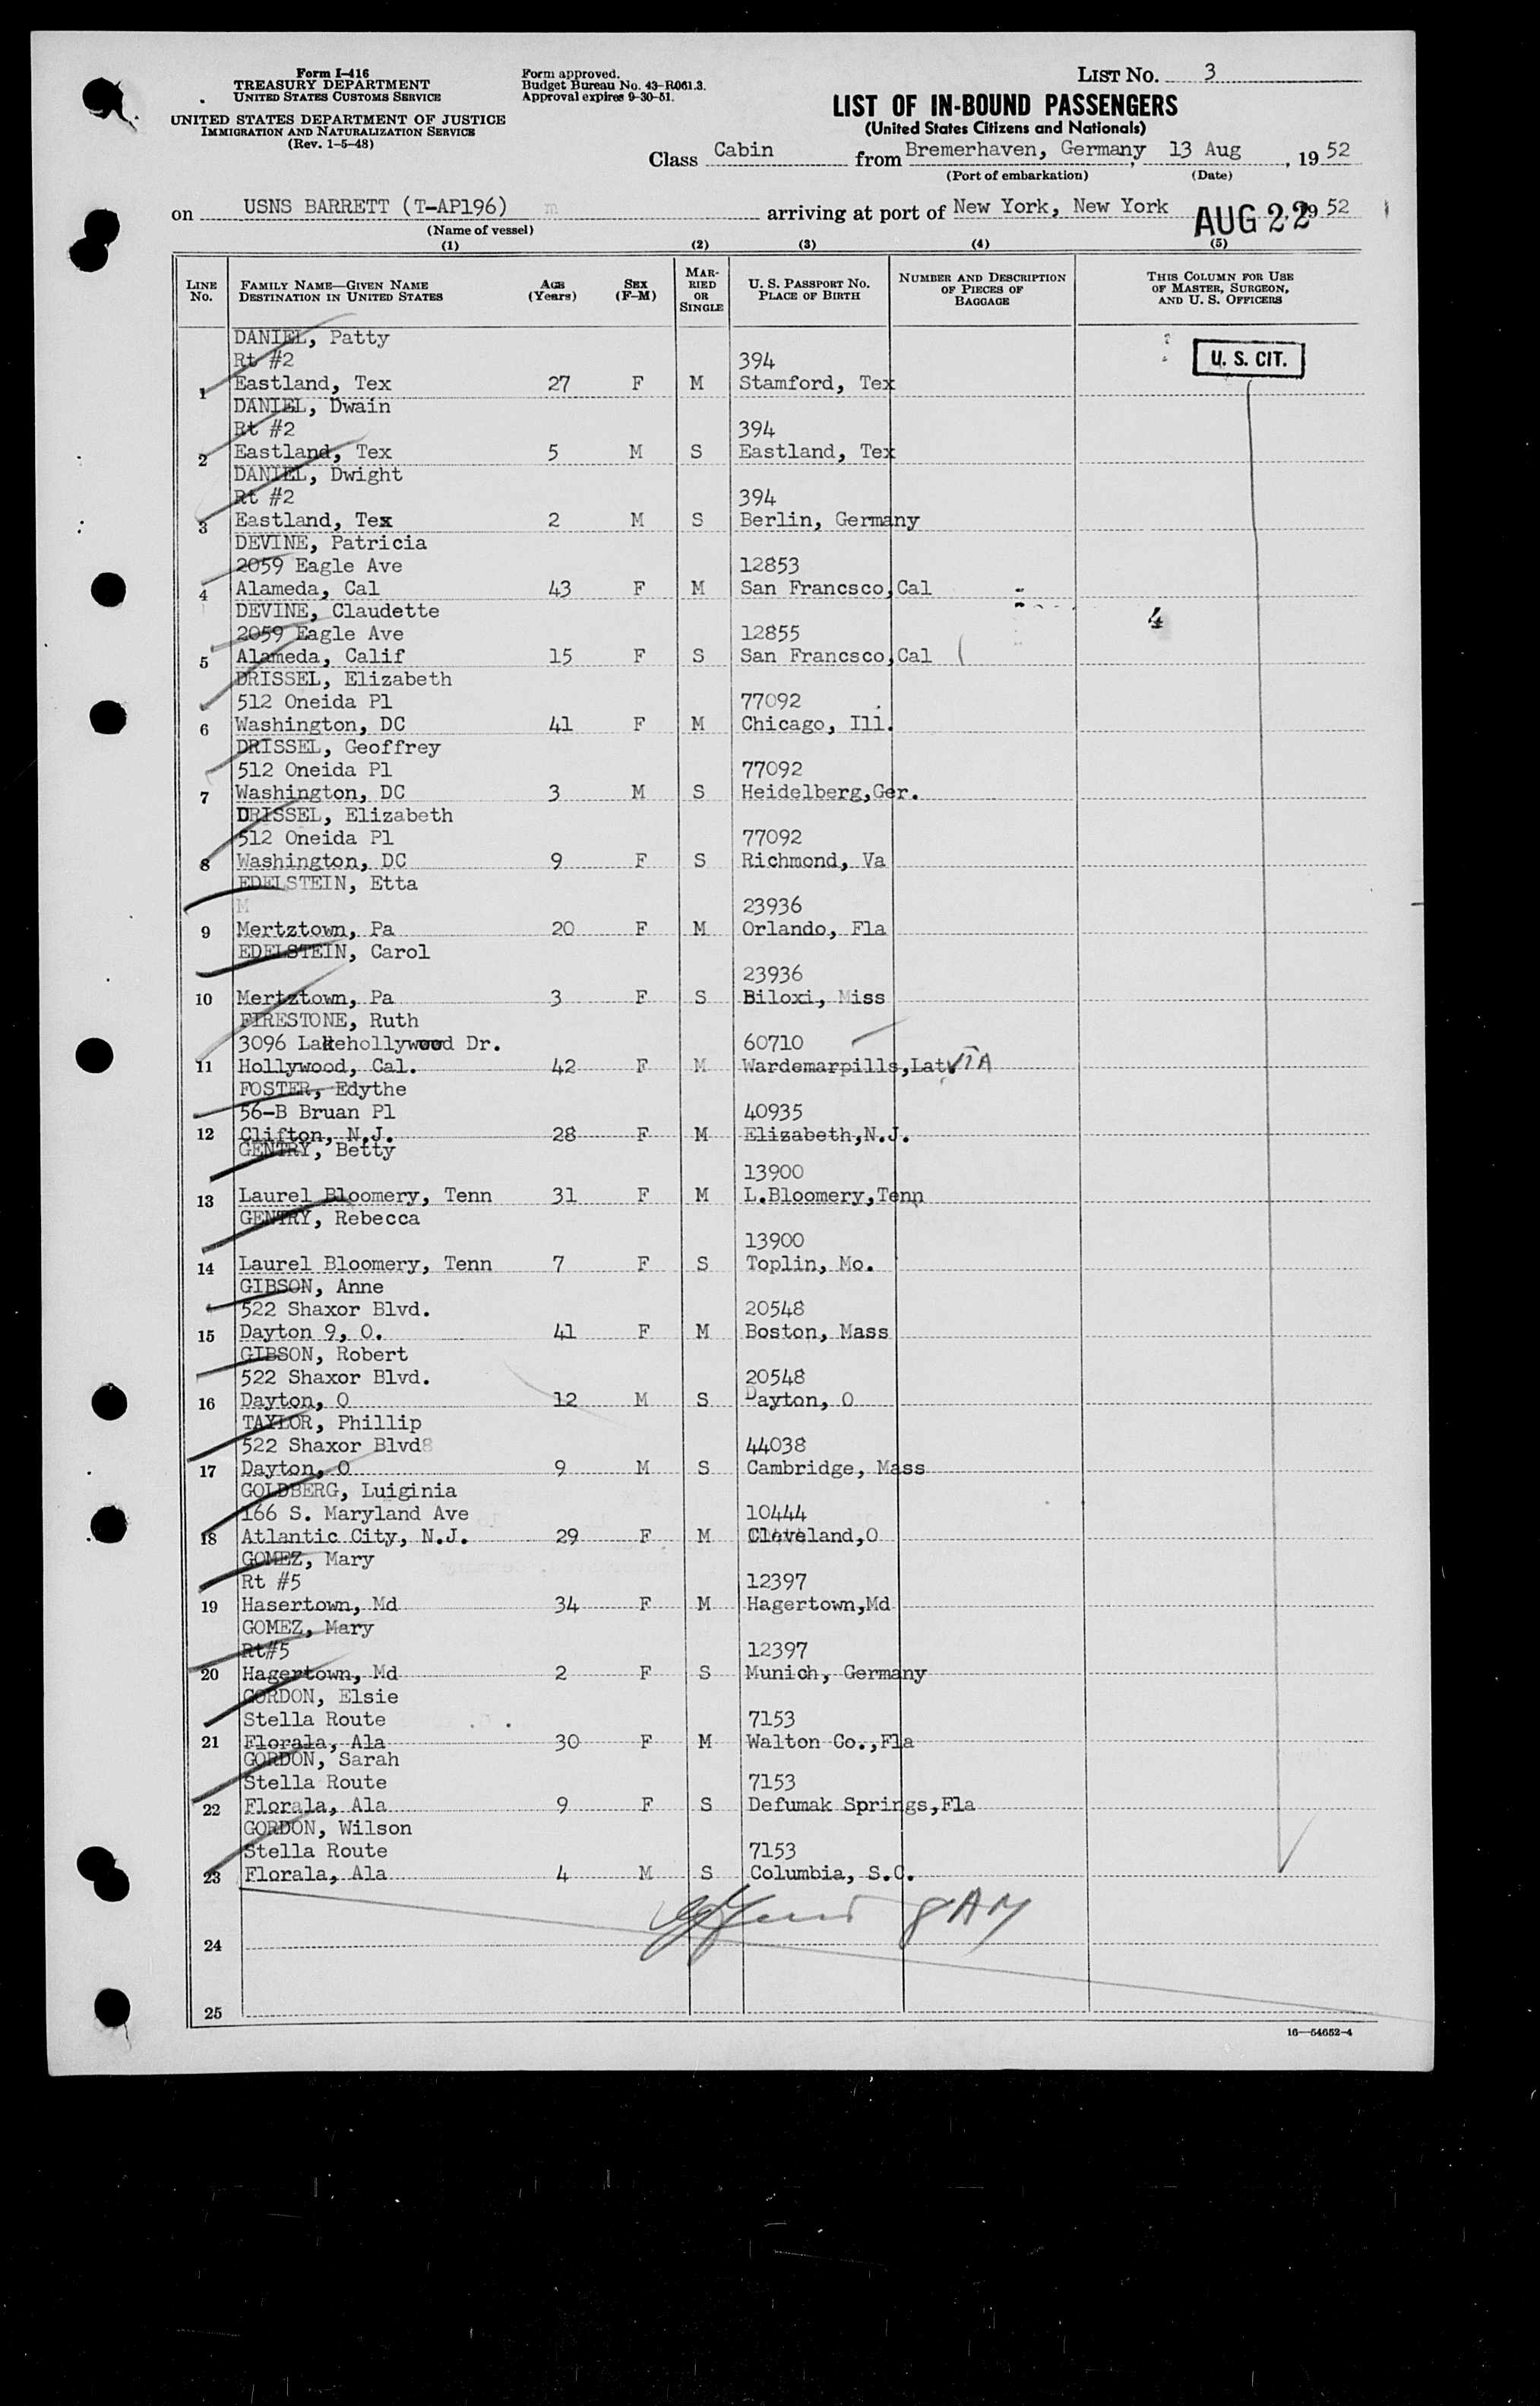 Form I-416
TREASURY DEPARTMENT
UNITED STATES CUSTOMS SERVICE
UNITED STATES DEPARTMENT OF JUSTICE
IMMIGRATION AND NATURALIZATION SERVICE
(Rev. 1-5-48)
Form approved.
Budget Bureau No. 43-R061.3.
Approval expires 9-30-51.
LIST NO. 3
LIST OF IN-BOUND PASSENGERS
(United States Citizens and Nationals)
Class Cabin from Bremerhaven, Germany, 13 Aug, 1952
(Port of embarkation) (Date)
on USNS BARRETT (T-AP196) m arriving at port of New York, New York AUG 22 1952
(Name of vessel)
(1) (2) (3) (4) (5)
LINE NO. FAMILY NAME—GIVEN NAME DESTINATION IN UNITED STATES AGE (Years) SEX (F-M) MARRIED OR SINGLE U. S. PASSPORT NO. PLACE OF BIRTH NUMBER AND DESCRIPTION OF PIECES OF BAGGAGE THIS COLUMN FOR USE OF MASTER, SURGEON, AND U. S. OFFICERS
DANIEL, Patty
Rt #2 394 U. S. CIT.
1 Eastland, Tex 27 F M Stamford, Tex
DANIEL, Dwain
Rt #2 394
2 Eastland, Tex 5 M S Eastland, Tex
DANIEL, Dwight
Rt #2 394
3 Eastland, Tex 2 M S Berlin, Germany
DEVINE, Patricia
2059 Eagle Ave 12853
4 Alameda, Cal 43 F M San Francsco,Cal
DEVINE, Claudette 4
2059 Eagle Ave 12855
5 Alameda, Calif 15 F S San Francsco,Cal
DRISSEL, Elizabeth
512 Oneida Pl 77092
6 Washington, DC 41 F M Chicago, Ill.
DRISSEL, Geoffrey
512 Oneida Pl 77092
7 Washington, DC 3 M S Heidelberg,Ger.
DRISSEL, Elizabeth
512 Oneida Pl 77092
8 Washington, DC 9 F S Richmond, Va
EDELSTEIN, Etta
M 23936
9 Mertztown, Pa 20 F M Orlando, Fla
EDELSTEIN, Carol
23936
10 Mertztown, Pa 3 F S Biloxi, Miss
FIRESTONE, Ruth
3096 Lakehollywood Dr. 60710
11 Hollywood, Cal. 42 F M Wardemarpills,Lat.VIA
FOSTER, Edythe
56-B Bruan Pl 40935
12 Clifton, N.J. 28 F M Elizabeth,N.J.
GENTRY, Betty
13900
13 Laurel Bloomery, Tenn 31 F M L.Bloomery,Tenn
GENTRY, Rebecca
13900
14 Laurel Bloomery, Tenn 7 F S Toplin, Mo.
GIBSON, Anne
522 Shaxor Blvd. 20548
15 Dayton 9, O. 41 F M Boston, Mass
GIBSON, Robert
522 Shaxor Blvd. 20548
16 Dayton, O 12 M S Dayton, O
TAYLOR, Phillip
522 Shaxor Blvd 44038
17 Dayton, O 9 M S Cambridge, Mass
GOLDBERG, Luiginia
166 S. Maryland Ave 10444
18 Atlantic City, N.J. 29 F M Cleveland,O
GOMEZ, Mary
Rt #5 12397
19 Hasertown, Md 34 F M Hagertown,Md
GOMEZ, Mary
Rt#5 12397
20 Hagertown, Md 2 F S Munich, Germany
GORDON, Elsie
Stella Route 7153
21 Florala, Ala 30 F M Walton Co.,Fla
GORDON, Sarah
Stella Route 7153
22 Florala, Ala 9 F S Defumak Springs,Fla
GORDON, Wilson
Stella Route 7153
23 Florala, Ala 4 M S Columbia, S.C.
24
25
16—54652-4